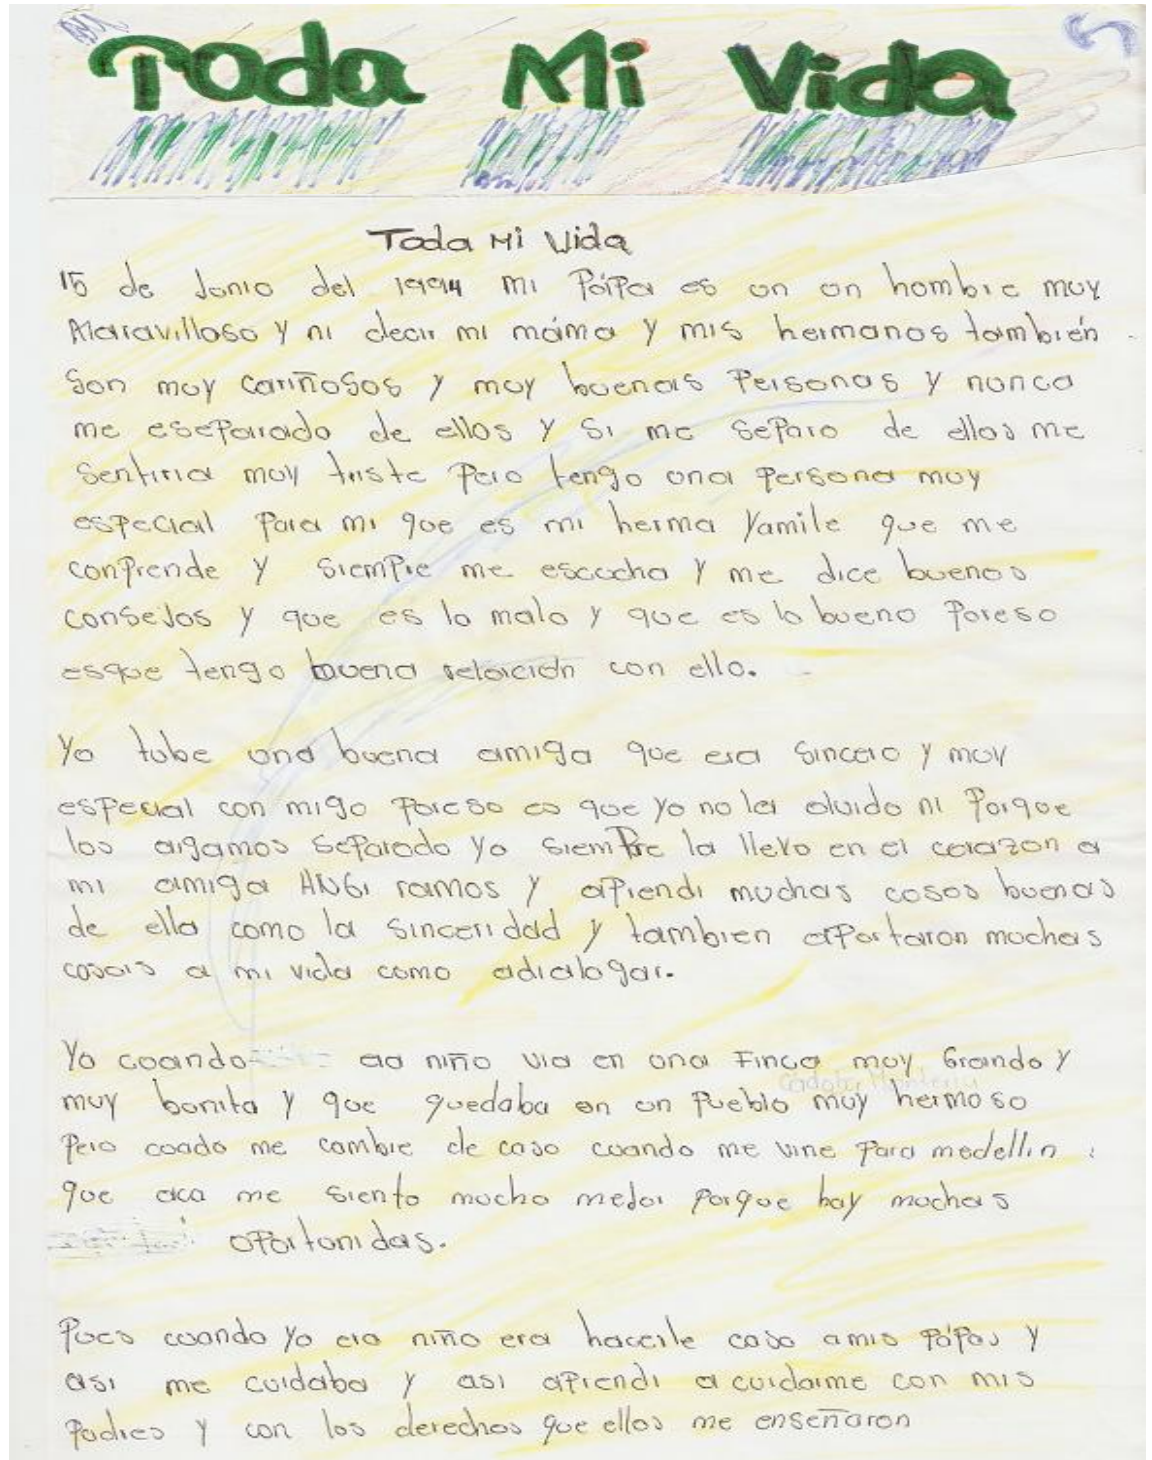 Toda Mi Vida
Toda Mi Vida
15 de Junio del 1994 mi Pápa es un un hombre muy
Maravilloso y ni decir mi máma y mis hermanos también
Son muy cariñosos y muy buenas Personas y nunca
me eseparado de ellos y Si me Separo de ellos me
Sentiria muy triste Pero tengo una Persona muy
especial Para mi que es mi herma Yamile que me
conprende y siempre me escucha y me dice buenos
consejos y que es lo malo y que es lo bueno Poreso
esque tengo buena relación con ello.
Yo tube una buena amiga que era Sincero y muy
especial con migo Poreso es que yo no la olvido ni Porque
los aigamos Separado Yo siempre la llevo en el corazon a
mi amiga ANGi ramos y aprendi muchas cosas buenas
de ella como la Sinceridad y tambien aportaron muchas
cosas a mi vida como adialogar.
Yo cuando niño via en una Finca muy Grande y
Cordoba Monteria
muy bonita y que quedaba en un Pueblo muy hermoso
Pero coado me cambie de caso cuando me vine Para medellin
que aca me siento mucho mejor Porque hay muchas
oportunidas.
Pues cuando yo era niño era hacerle caso amis Pápas y
asi me cuidaba y asi aprendi a cuidarme con mis
Padres y con los derechos que ellos me enseñaron